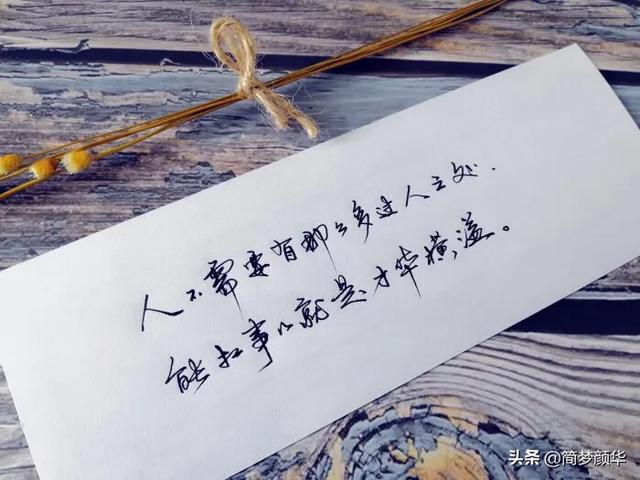 人不需要有那么多过人之处，
能扛事儿就是才华横溢。
头条 @简梦颜华